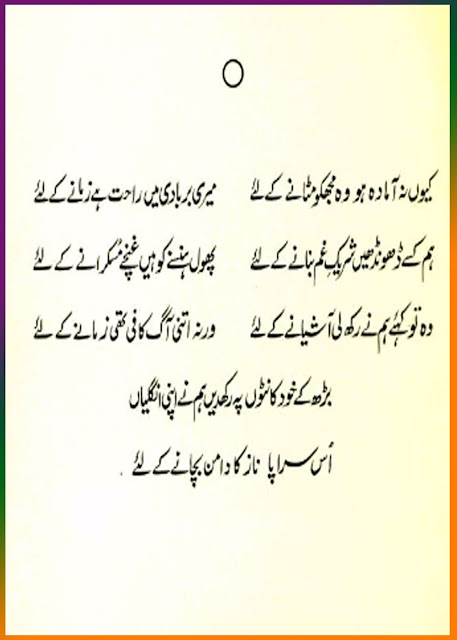 کیوں نہ آمادہ ہو وہ مجھکو مٹانے کے لئے میری بربادی میں راحت ہے زمانے کے لئے
ہم کسے ڈھونڈھیں شریکِ غم بنانے کے لئے پھول ہنسنے کو ہیں غنچے مُسکرانے کے لئے
وہ تو کہئے ہم نے رکھ لی آشیانے کے لئے ورنہ اتنی آگ کافی تھی زمانے کے لئے
بڑھ کے خود کانٹوں پہ رکھدیں ہم نے اپنی انگلیاں
اُس سراپا ناز کا دامن بچانے کے لئے